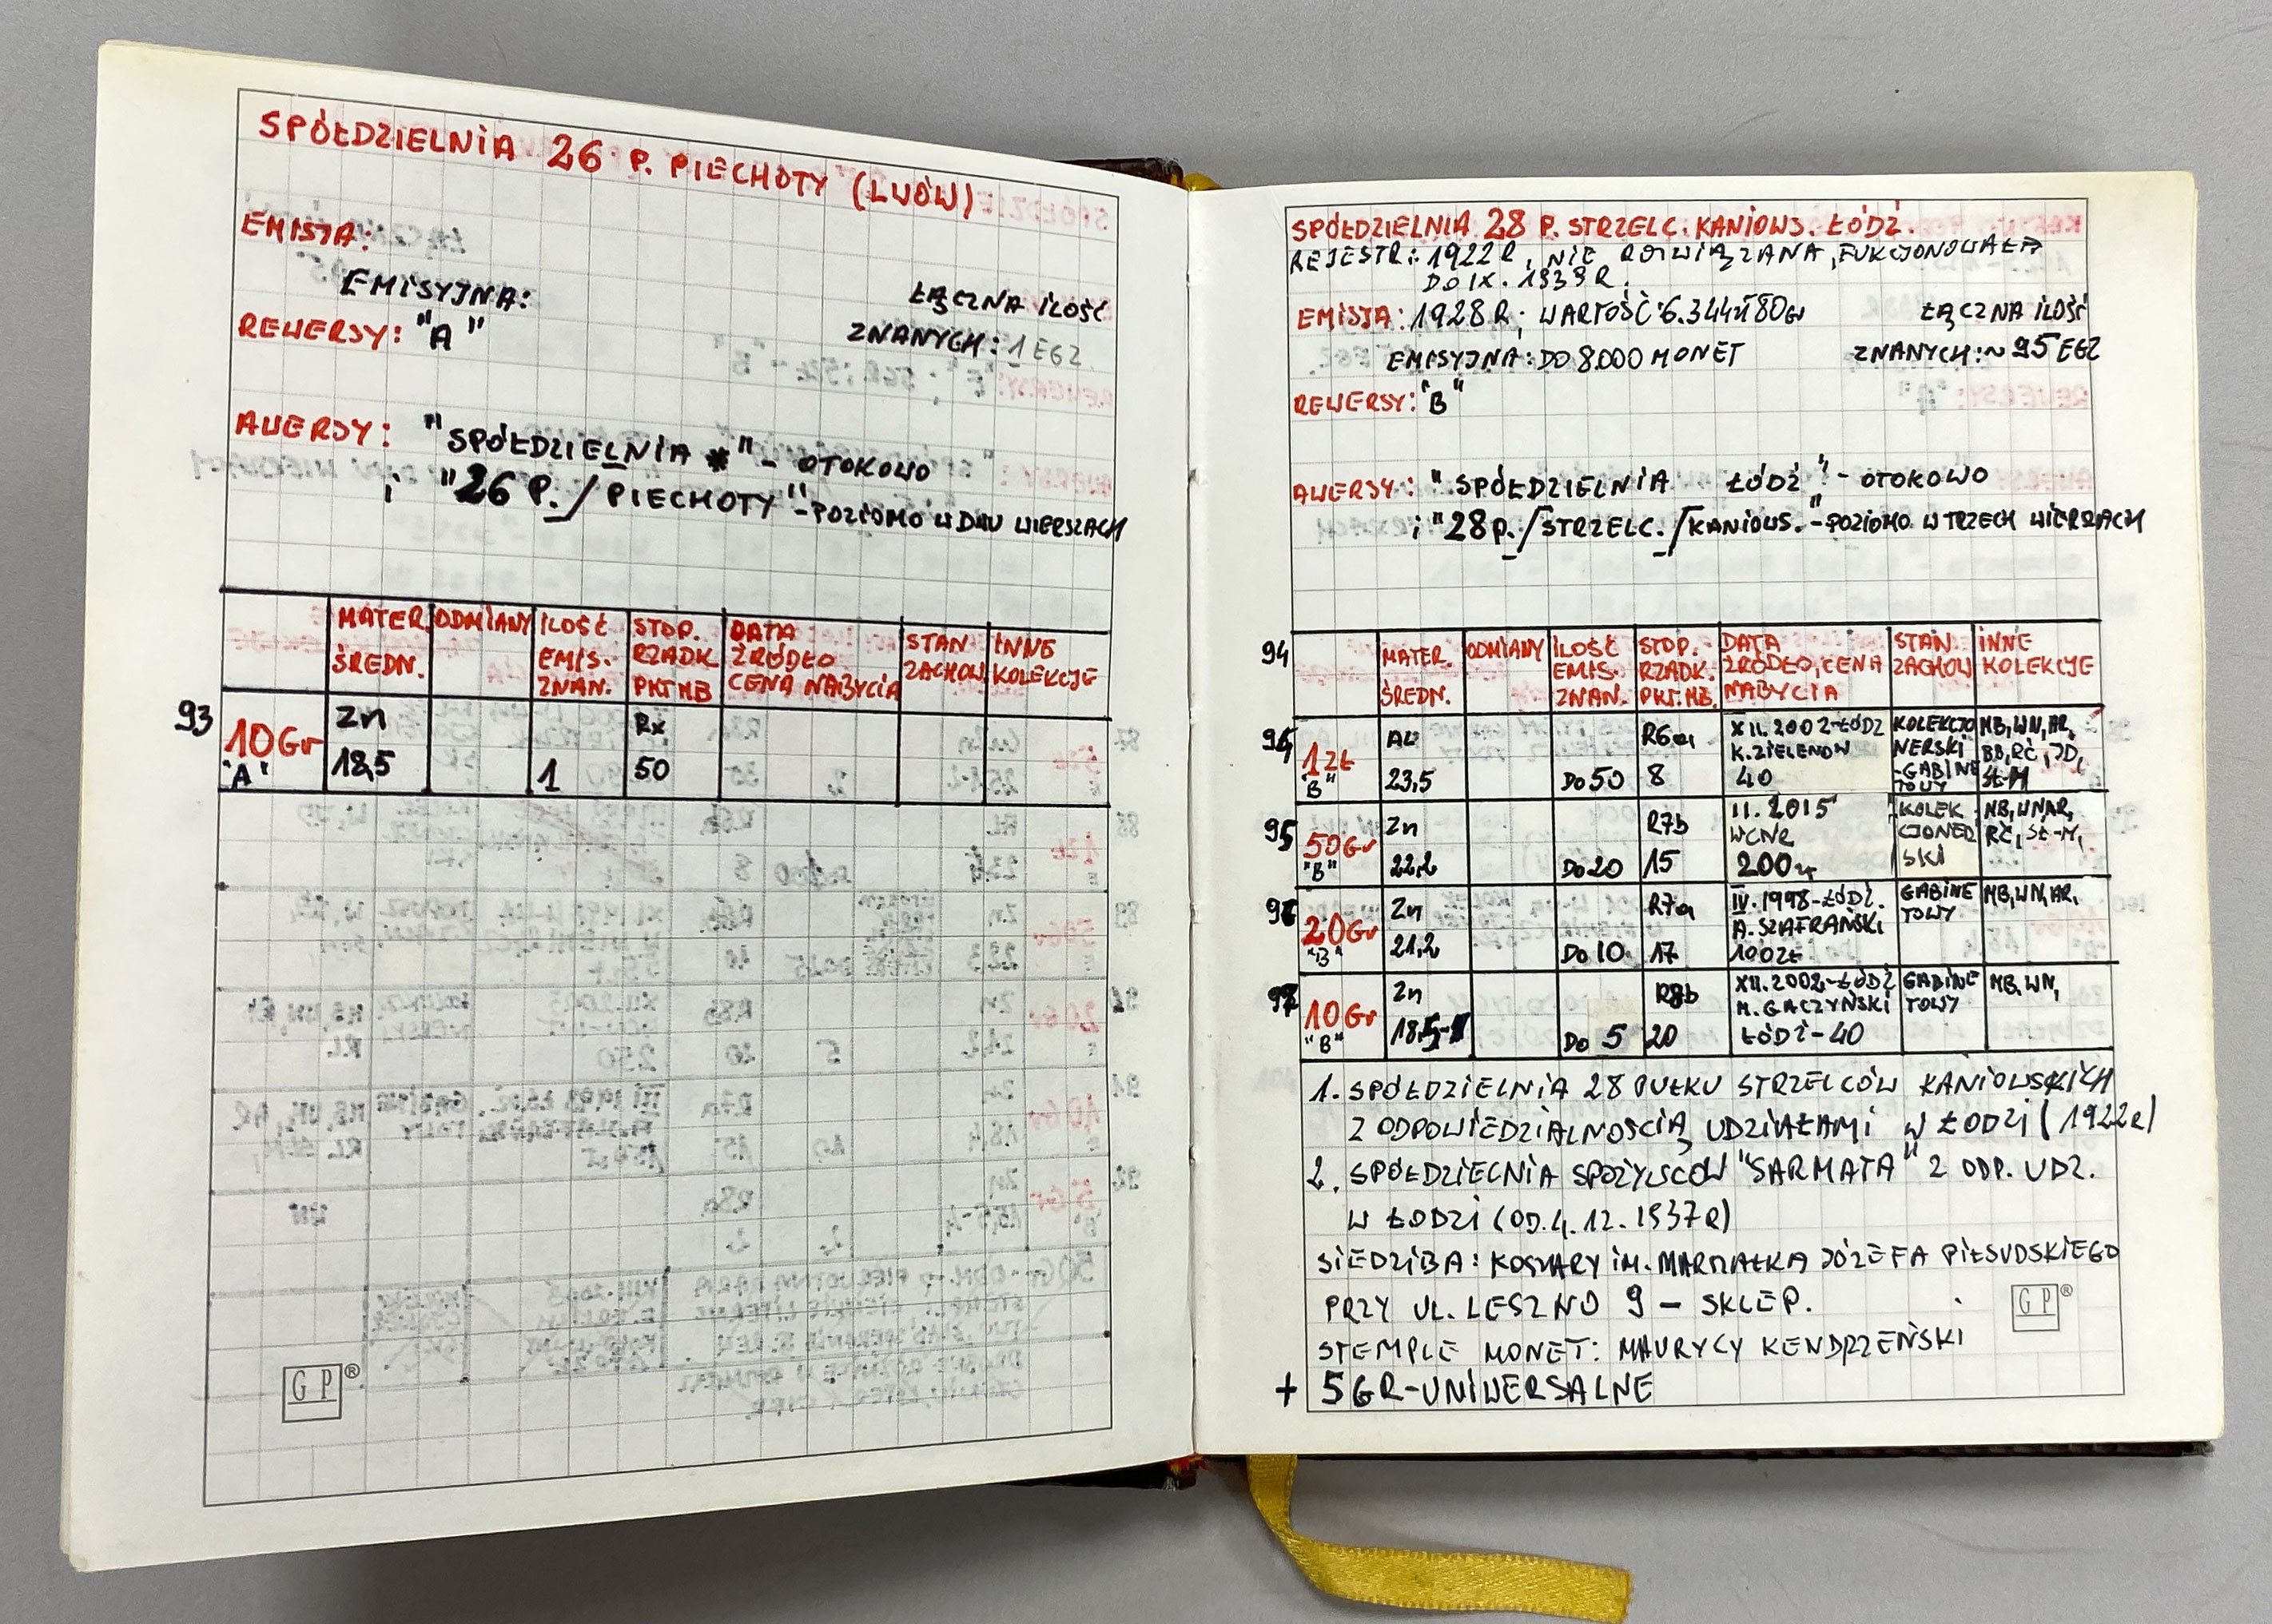 SPÓŁDZIELNIA 26 P. PIECHOTY (LWÓW)
EMISJA:
EMISYJNA:
ŁĄCZNA ILOŚĆ
REWERSY: "A"
ZNANYCH: 1 EGZ.
AWERSY: "SPÓŁDZIELNIA *" - OTOKOWO
i "26 P./PIECHOTY" - POZIOMO W DWU WIERSZACH
MATER. ŚREDN. ODMIANY ILOŚĆ EMIS. ZNAN. STOP. RZADK. PKT MB DATA ŹRÓDŁO CENA NABYCIA STAN ZACHOW. INNE KOLEKCJE
93 10 Gr "A" Zn 18,5 1 Rx 50
G P ®
SPÓŁDZIELNIA 28 P. STRZELC. KANIOWS. ŁÓDŹ.
REJESTR: 1922 R, NIE ROZWIĄZANA, FUKCJONOWAŁA
DO IX. 1939 R.
EMISJA: 1928 R; WARTOŚĆ: 6.344 zł 80 Gr
ŁĄCZNA ILOŚĆ
EMISYJNA: DO 8.000 MONET
ZNANYCH: ~ 95 EGZ
REWERSY: "B"
AWERSY: "SPÓŁDZIELNIA ŁÓDŹ" - OTOKOWO
i "28 P./STRZELC./KANIOWS." - POZIOMO W TRZECH WIERSZACH
94 MATER. ŚREDN. ODMIANY ILOŚĆ EMIS. ZNAN. STOP. RZADK. PKT. MB. DATA ŹRÓDŁO, CENA NABYCIA STAN. ZACHOW INNE KOLEKCJE
94 1 ZŁ "B" AL 23,5 DO 50 R6a 8 XII. 2002 - ŁÓDŹ K. ZIELENOW 40 KOLEKCJONERSKI - GABINETOWY MB, WN, AR, BB, RĆ, JD, SŁ-M
95 50 Gr "B" Zn 22,2 DO 20 R7b 15 II. 2015 WCNR 200 zł KOLEKCJONERSKI MB, WN, AR, RĆ, SŁ-M,
96 20 Gr "B" Zn 21,2 DO 10 R7a 17 IV. 1998 - ŁÓDŹ. A. SZAFRAŃSKI 100 ZŁ GABINETOWY MB, WN, AR,
97 10 Gr "B" Zn 18,5 DO 5 R8b 20 XII. 2002 - ŁÓDŹ M. GACZYŃSKI ŁÓDŹ - 40 GABINETOWY MB, WN,
1. SPÓŁDZIELNIA 28 PUŁKU STRZELCÓW KANIOWSKICH
Z ODPOWIEDZIALNOŚCIĄ UDZIAŁAMI W ŁODZI (1922 R)
2. SPÓŁDZIELNIA SPOŻYWCÓW "SARMATA" Z ODP. UDZ.
W ŁODZI (OD. 4. 12. 1937 R)
SIEDZIBA: KOSZARY IM. MARSZAŁKA JÓZEFA PIŁSUDSKIEGO
PRZY UL. LESZNO 9 - SKLEP.
STEMPLE MONET: MAURYCY KENDRZEŃSKI
+ 5 GR - UNIWERSALNE
G P ®